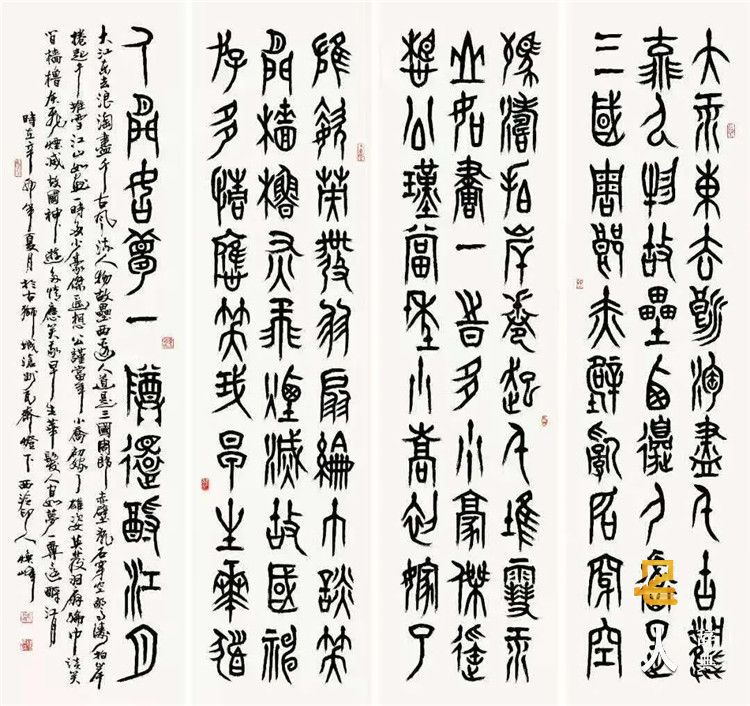 大江東去浪淘盡千古風
流人物故壘西邊人道是
三國周郎赤壁亂石穿空
驚濤拍岸卷起千堆雪江
山如畫一時多少豪傑遙
想公瑾當年小喬初嫁了
雄姿英發羽扇綸巾談笑
間檣櫓灰飛煙滅故國神
遊多情應笑我早生華髮
人間如夢一尊還酹江月
大江東去浪淘盡千古風流人物故壘西邊人道是三國周郎赤壁亂石穿空驚濤拍岸
捲起千堆雪江山如畫一時多少豪傑遙想公瑾當年小喬初嫁了雄姿英發羽扇綸巾談笑
間檣櫓灰飛煙滅故國神遊多情應笑我早生華髮人間如夢一尊還酹江月
時在辛卯年夏月於古獅城滄州克齋燈下西泠印人